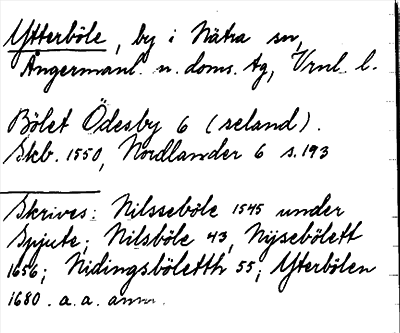 Ytterböle, by i Nätra sn,
Ångermanl. n. doms. tg, Vrnl. l.
Bölet Ödesby 6 (seland).
Skb. 1550, Nordlander 6 s. 193
Skrives: Nilsseböle 1545 under
Spjute; Nilsböle 43, Nysebölett
1656; Nidingsböletth 55; Ytterbölen
1680. a. a. anm.